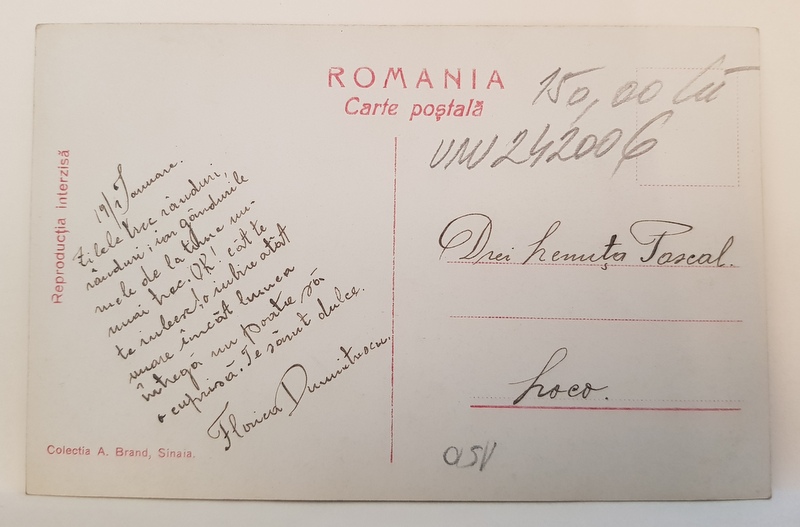 ROMANIA
Carte poștală
150,00 lei
UNU 242006
Reproducția interzisă
19/I Januare.
Zilele trec rânduri,
rânduri; iar gândurile
mele de la tine nu-
mai trec. Oh! cât te
te iubesc, o iubire atât
mare încât lumea
întregă nu poate să
o cuprisă. Te sărut dulce.
Florica Dumitrescu.
Drei Lenuța Pascal.
Loco.
Colectia A. Brand, Sinaia.